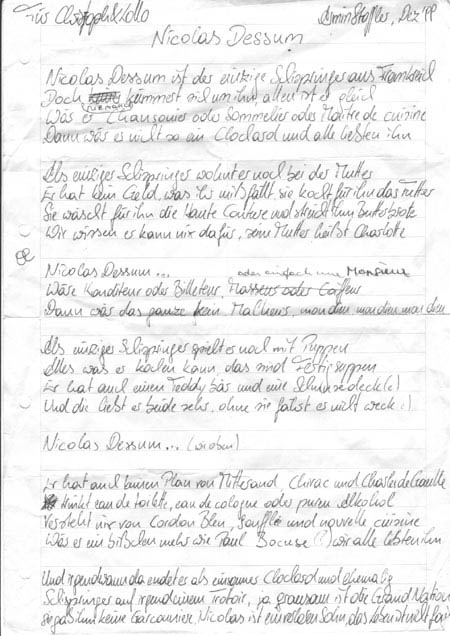 Für Christoph & Lollo
Armin Staffler, Dez '99
Nicolas Dessum
Nicolas Dessum ist der einzige Schispringer aus Frankreich
Doch niemand kümmert sich um ihn, allen ist er gleich
Wär er Chansonier oder Sommelier oder Maitre de cuisine
Dann wär er nicht so ein Clochard und alle liebten ihn
Als einziger Schispringer wohnt er noch bei der Mutter
Er hat kein Geld, was ihr mißfällt sie kocht für ihn das Futter
Sie wäscht für ihn die Haute Couture und streicht ihm Butterbrote
Wir wissen er kann nix dafür, seine Mutter heißt Charlotte
Nicolas Dessum...
oder einfach nur Monsieur
Wäre Konditeur oder Billeteur, Masseur oder Coiffeur
Dann wär das ganze kein Malheur, mon dieu mon dieu mon dieu
Als einziger Schispringer spielt er noch mit Puppen
Alles was er kochen kann, das sind Fertigsuppen
Er hat auch einen Teddybär und eine Schmusedeck(e)
Und die liebt er beide sehr, ohne sie fährt er nicht weck(e)
Nicolas Dessum... (wie oben)
Er hat auch keinen Plan von Mitterand, Chirac und Charles de Gaulle
trinkt eau de toilette, eau de cologne oder puren Alkohol
Versteht nix von Cordon Bleu, Soufflé und nouvelle cuisine
Wär er ein bißchen mehr wie Paul Bocuse (!) wir alle liebten ihn
Und irgendwann da endet er als einsamer Clochard und ehemalig
Schispringer auf irgendeinem Trottoir, ja grausam ist die Grand Nation
sie gab ihm keine Garconniere, Nicolas ist ein verlorner Sohn, das Leben ist nicht fair